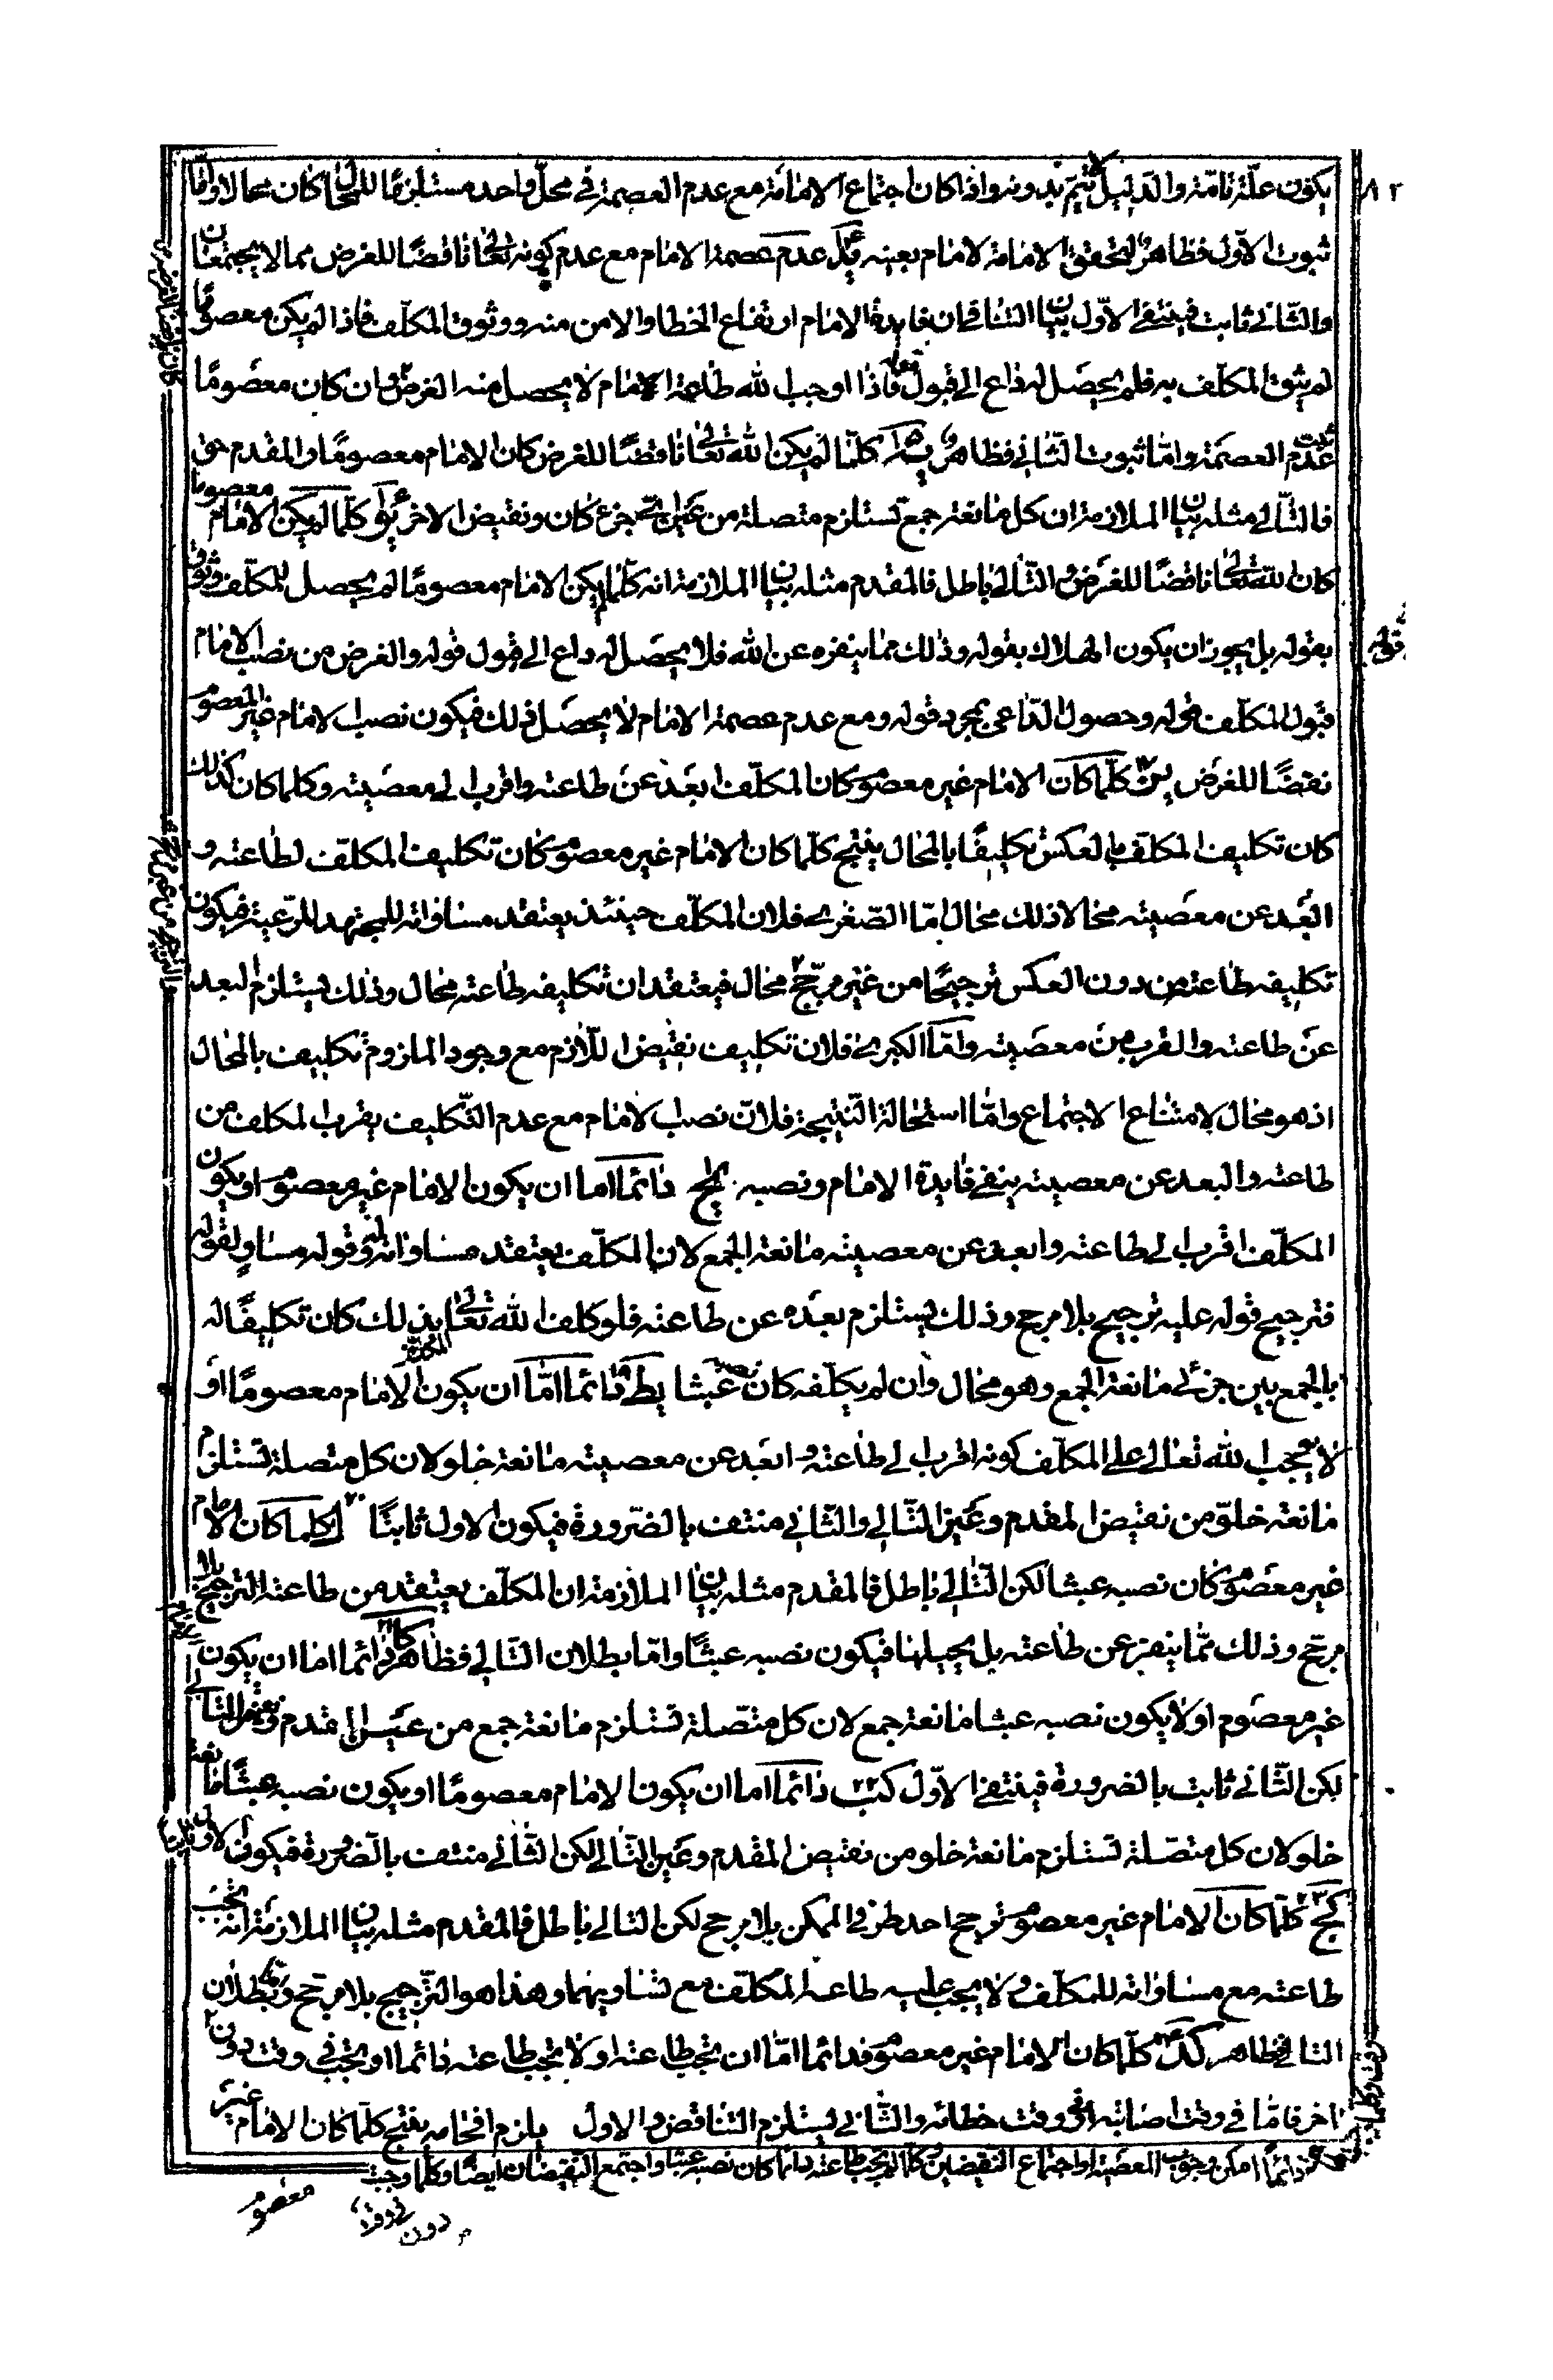 ٨٢
يكون علّة تامّة والدليل لا يتم بدونه واذا كان اجتماع الامامة مع عدم العصمة في محلّ واحد مستلزمًا للمحال كان محالا وامّا
ثبوت الاوّل فظاهر لتحقق الامامة لامام بعينه يد عدم عصمة الامام مع عدم كونه تعالى ناقضًا للغرض مما لا يجتمعان
والثّاني ثابت فينتفي الاوّل بيان التنافي ان فايدة الامام ارتفاع الخطا والامن منه ووثوق المكلّف فاذا لم يكن معصومًا
لم يثق المكلّف به فلم يحصل له داع الى قبول قوله فاذا اوجب الله طاعة الامام لا يحصل منه الغرض وان كان معصومًا
عدم العصمة وامّا ثبوت الثّاني فظاهر يه كلّما لم يكن الله تعالى ناقضًا للغرض كان الامام معصومًا والمقدم حق
فالتّالي مثله بيان الملازمة ان كل مانعة جمع تستلزم متصلة من عين اىّ جزء كان ونقيض الاخر يو كلّما لم يكن الامام معصوما
كان الله تعالى ناقضًا للغرض والتّالي باطل فالمقدم مثله بيان الملازمة انه كلّما لم يكن الامام معصومًا لم يحصل للمكلّف وثوق
بقوله بل يجوز ان يكون الهلاك بقوله وذلك ممّا ينفره عن الله فلا يحصل له داع الى قبول قوله والغرض من نصب الامام
قبول المكلّف قوله وحصول الدّاعي بمجرد قوله ومع عدم عصمة الامام لا يحصل ذلك فيكون نصب الامام غير المعصوم
نقضًا للغرض يز كلّما كان الامام غير معصوم كان المكلّف ابعد عن طاعته واقرب الى معصيته وكلما كان كذلك
كان تكليف المكلّف بالعكس تكليفًا بالمحال ينتج كلّما كان الامام غير معصوم كان تكليف المكلّف لطاعته و
البعد عن معصيته محالا ذلك محال امّا الصّغرى فلان المكلّف حينئذ يعتقد مساواته للمجتهد للرّعية فيكون
تكليفه طاعته من دون العكس ترجيحًا من غير مرجّح محال فيعتقد ان تكليفه طاعته محال وذلك يستلزم البعد
عن طاعته والقرب من معصيته وامّا الكبرى فلان تكليف نقيض اللّازم مع وجود الملزوم تكليف بالمحال
اذ هو محال لامتناع الاجتماع وامّا استحالة النّتيجة فلانّ نصب الامام مع عدم التّكليف بقرب المكلف من
طاعته والبعد عن معصيته ينفي فايدة الامام ونصبه يح دائما اما ان يكون الامام غير معصوم او يكون
المكلّف اقرب الى طاعته وابعد عن معصيته مانعة الجمع لان المكلّف يعتقد مساواته له وقوله مساوٍ لقوله
فترجيح قوله عليه ترجيح بلا مرجح وذلك يستلزم بعده عن طاعته فلو كلف الله تعالى بذلك كان تكليفًا له
بالجمع بين جزئي مانعة الجمع وهو محال وان لم يكلّفه كان نصبه عبثا يط دائما امّا ان يكون الامام معصومًا او
لا يجب الله تعالى على المكلّف كونه اقرب الى طاعته وابعد عن معصيته مانعة خلو لان كل متصلة تستلزم
مانعة خلوّ من نقيض المقدم وعين التّالي والثّاني منتف بالضّرورة فيكون الاول ثابتًا ك كلما كان الامام
غير معصوم كان نصبه عبثا لكن التّالي باطل فالمقدم مثله بيان الملازمة ان المكلّف يعتقد من طاعته الترجيح بلا
مرجّح وذلك ممّا ينفر عن طاعته بل يحيلها فيكون نصبه عبثًا وامّا بطلان التّالي فظاهر كا دائما اما ان يكون
غير معصوم او لا يكون نصبه عبثا مانعة جمع لان كل متّصلة تستلزم مانعة جمع من عين المقدم ونقيض التالي
لكن الثّاني ثابت بالضرورة فينتفي الاوّل كب دائما اما ان يكون الامام معصومًا او يكون نصبه عبثًا مانعة
خلو لان كل متصّلة تستلزم مانعة خلو من نقيض المقدم وعين التّالي لكن الثّاني منتف بالضرورة فيكون الاول ثابتا
كج كلّما كان الامام غير معصوم ترجح احد طرفي الممكن بلا مرجح لكن التالي باطل فالمقدم مثله بيان الملازمة انه يجب
طاعته مع مساواته للمكلّف ولا يجب عليه طاعة المكلّف مع تساويهما وهذا هو الترّجيح بلا مرجّح وبطلان
التالي ظاهر كد كلّما كان الامام غير معصوم فدائما امّا ان تجب طاعته او لا تجب طاعته دائما او تجب في وقت دون
اخر فامّا في وقت اصابته او في وقت خطائه والثّاني يستلزم التّناقض والاول يلزم افحامه ينتج كلّما كان الامام غير
معصوم دائمًا امكن وجوب المعصية او اجتماع النّقيضين كلّما لم تجب طاعته دائما كان نصبه عبثا واجتمع النقيضان ايضًا وكلّما وجبت
معصوم
في وقت دون